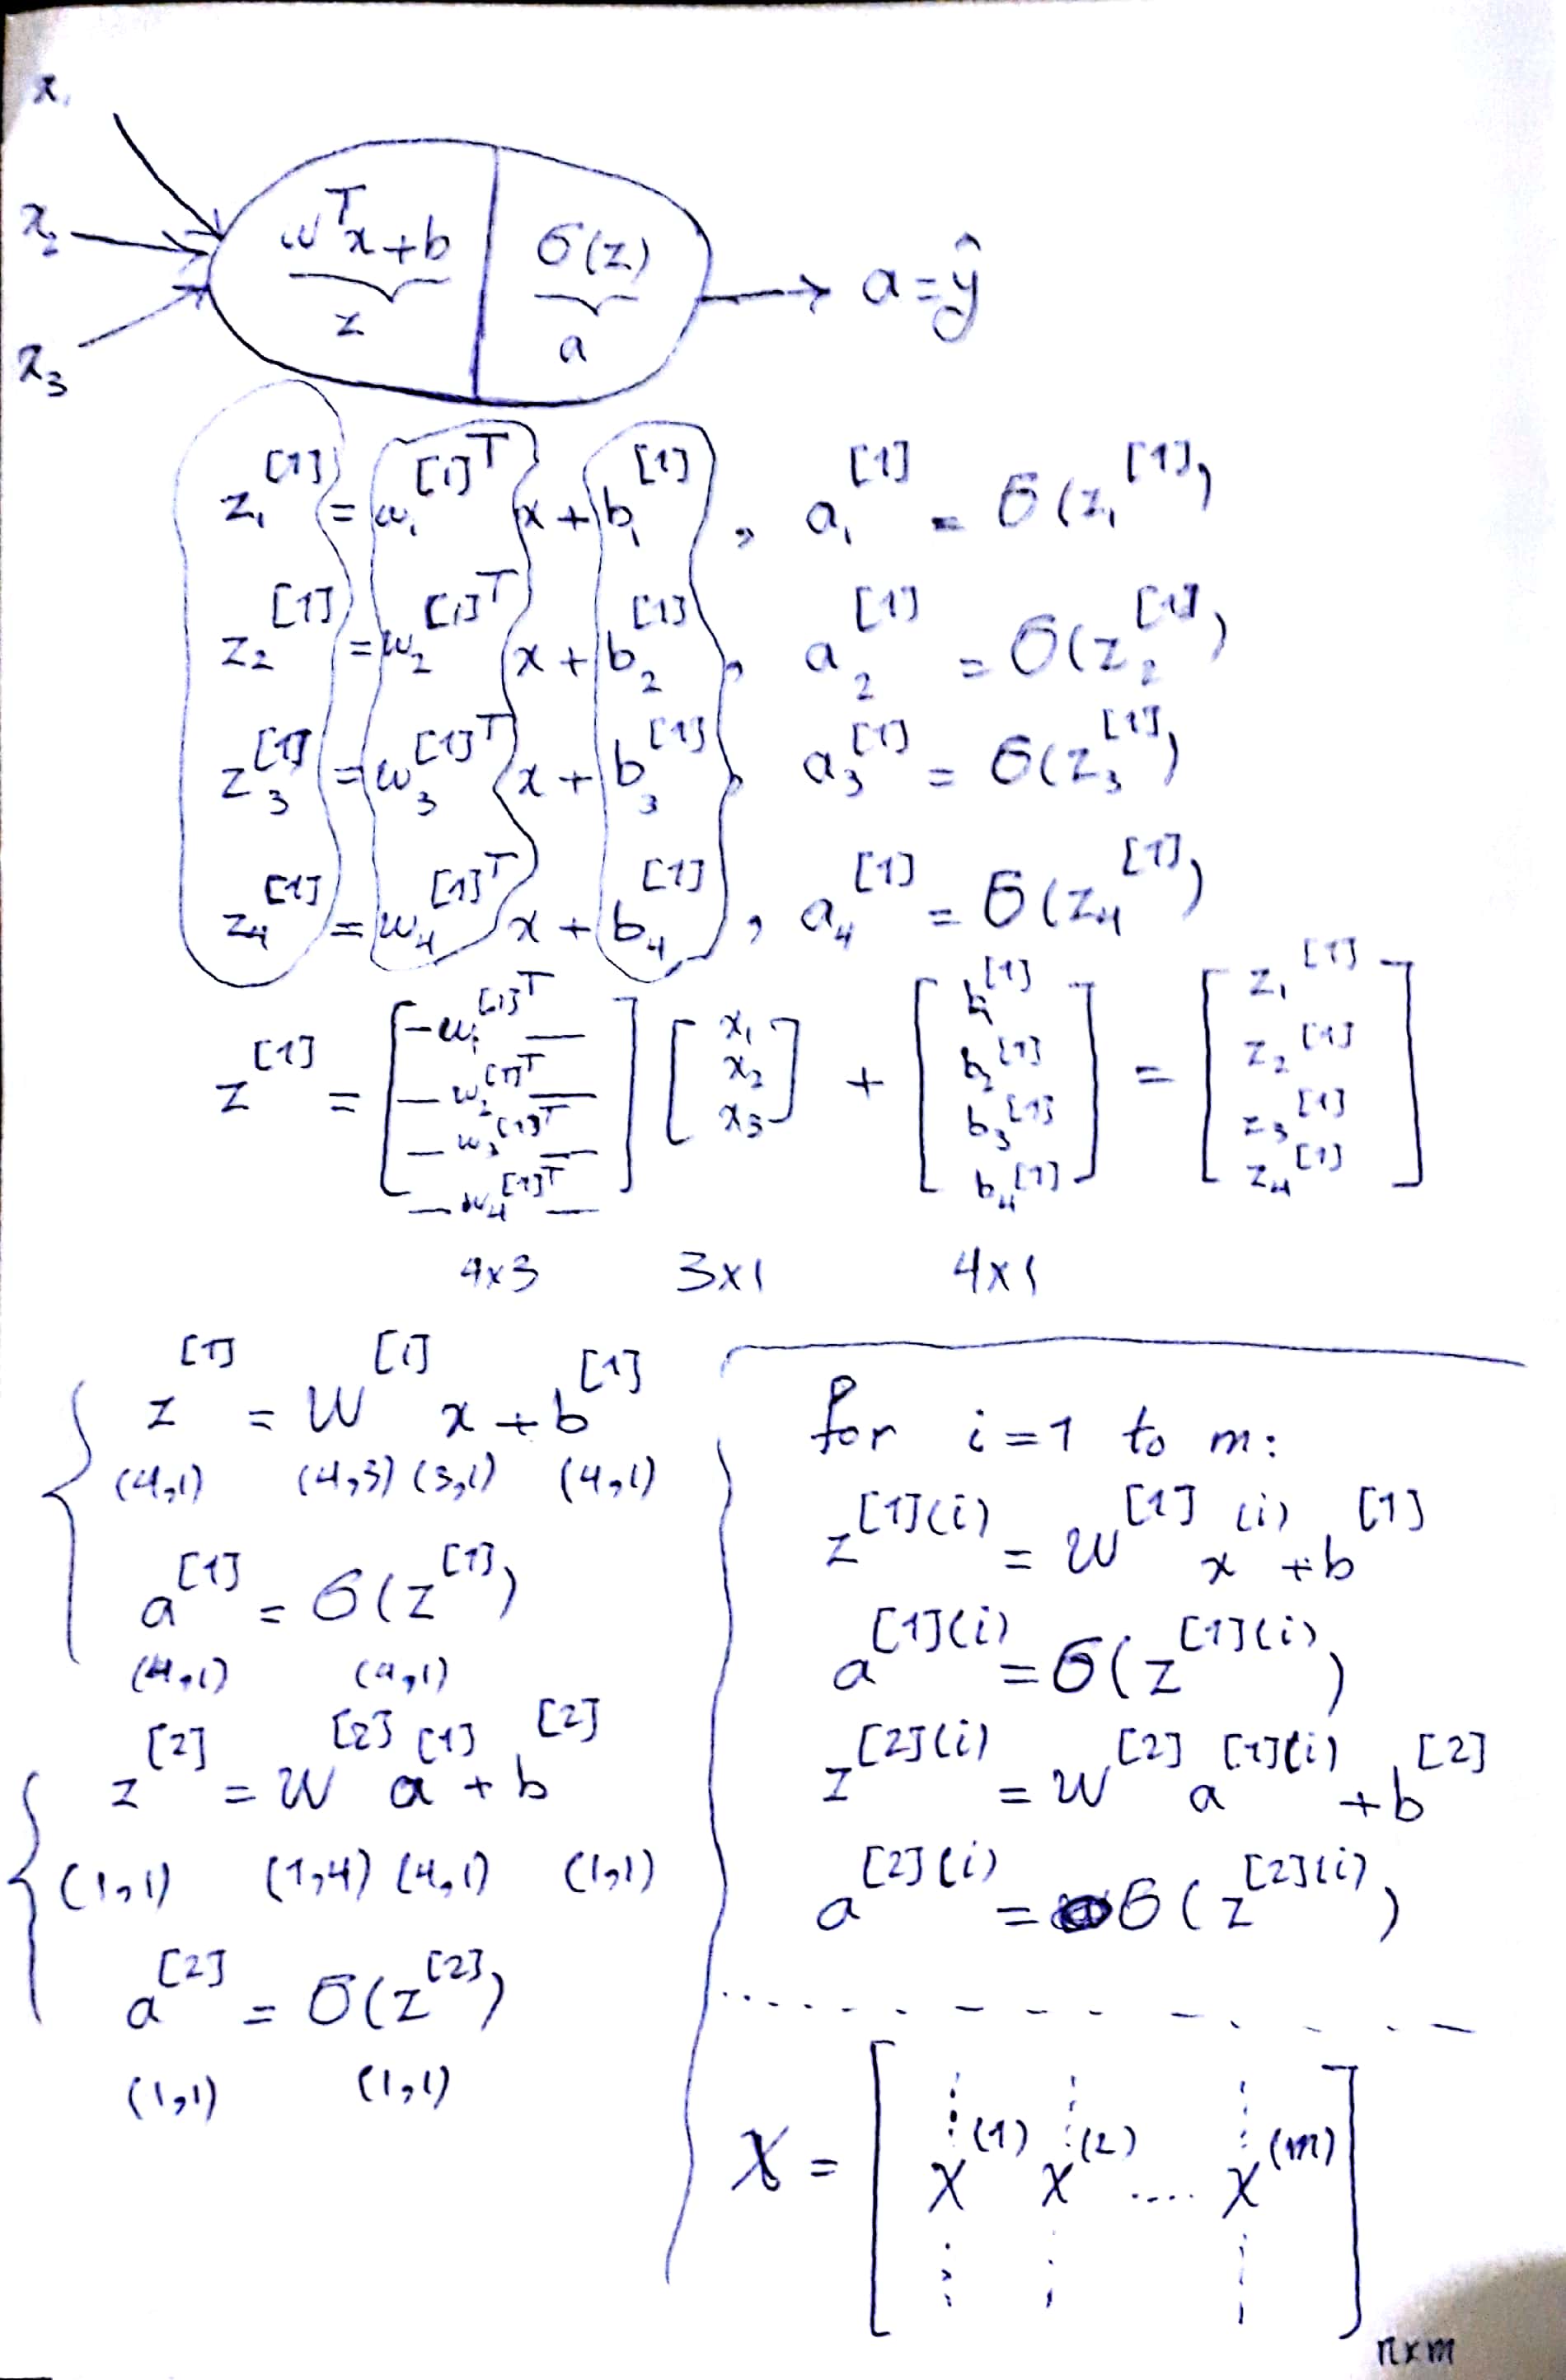 x₁
x₂
x₃
wᵀx+b
z
σ(z)
a
a=ŷ
z₁^[1] = w₁^[1]ᵀ x + b₁^[1] , a₁^[1] = σ(z₁^[1])
z₂^[1] = w₂^[1]ᵀ x + b₂^[1] , a₂^[1] = σ(z₂^[1])
z₃^[1] = w₃^[1]ᵀ x + b₃^[1] , a₃^[1] = σ(z₃^[1])
z₄^[1] = w₄^[1]ᵀ x + b₄^[1] , a₄^[1] = σ(z₄^[1])
z^[1] = [ —w₁^[1]ᵀ— —w₂^[1]ᵀ— —w₃^[1]ᵀ— —w₄^[1]ᵀ— ] [ x₁ x₂ x₃ ] + [ b₁^[1] b₂^[1] b₃^[1] b₄^[1] ] = [ z₁^[1] z₂^[1] z₃^[1] z₄^[1] ]
4x3 3x1 4x1
z^[1] = W^[1] x + b^[1]
(4,1) (4,3) (3,1) (4,1)
a^[1] = σ(z^[1])
(4,1) (4,1)
z^[2] = W^[2] a^[1] + b^[2]
(1,1) (1,4) (4,1) (1,1)
a^[2] = σ(z^[2])
(1,1) (1,1)
for i=1 to m:
z^[1](i) = W^[1] x^(i) + b^[1]
a^[1](i) = σ(z^[1](i))
z^[2](i) = W^[2] a^[1](i) + b^[2]
a^[2](i) = σ(z^[2](i))
X = [ x^(1) x^(2) .... x^(m) ]
nxm